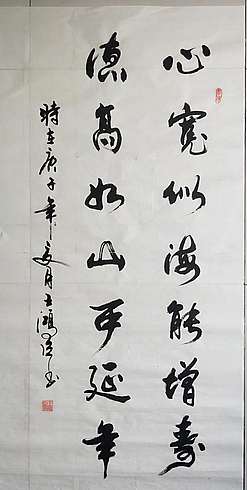 心宽似海能增寿
德高如山可延年
時在庚子年夏月